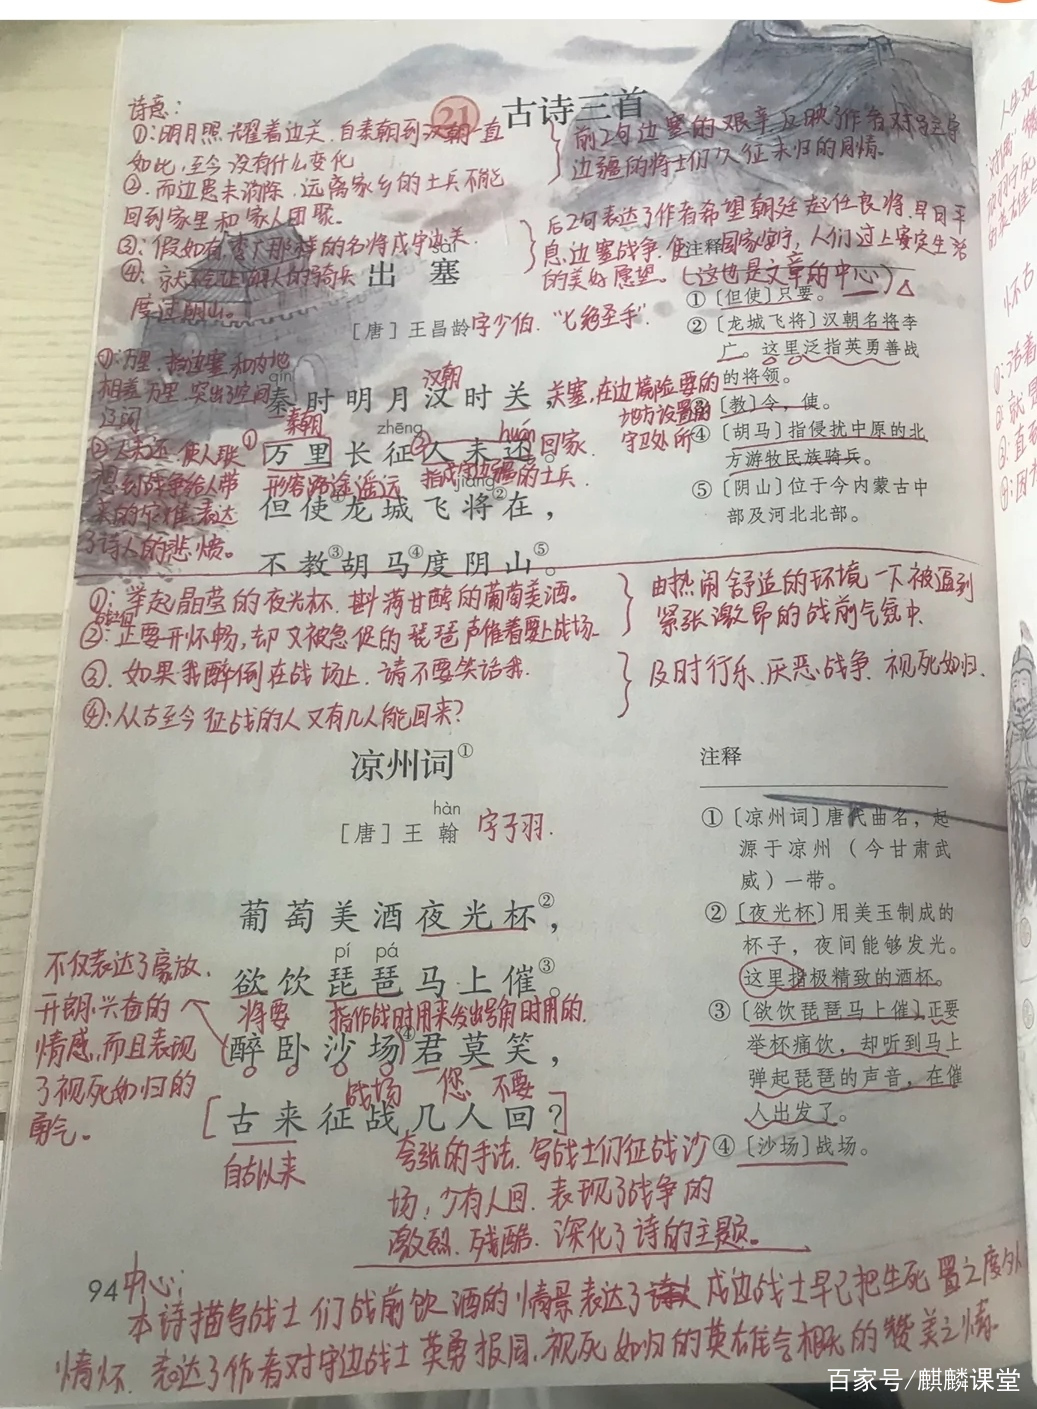 诗意:
21 古诗三首
①:明月照耀着边关.自秦朝到汉朝一直
如此,至今没有什么变化
②.而边患未消除.远离家乡的士兵不能
回到家里和家人团聚。
③:假如有李广那样的名将戍守边关.
④:就不会让胡人的骑兵
度过阴山。
前2句边塞的艰辛,反映了作者对
边疆的将士们久征未归的同情。
后2句表达了作者希望朝廷起任良将.早日平
息边塞战争.使国家安宁,人们过上安定生活
的美好愿望。(这也是文章的中心)
sài
出 塞
[唐]王昌龄字少伯."七绝圣手".
①:万里.指边塞和内地
相差万里.突出了空间
辽阔
②人未还.使人联
想到战争给人带
来的灾难.表达
了诗人的悲愤。
qín
秦时明月汉时关,
秦朝
汉朝
关塞,在边境险要的
地方设置的
守卫处所
zhēng huán
①万里长征②人未还。回家.
形容路途遥远 指戍守边疆的士兵.
jiàng
但使①龙城飞将②在,
不教③胡马④度阴山⑤。
注释
①[但使]只要。
②[龙城飞将]汉朝名将李
广。这里泛指英勇善战
的将领。
③[教]令,使。
④[胡马]指侵扰中原的北
方游牧民族骑兵。
⑤[阴山]位于今内蒙古中
部及河北北部。
①:举起晶莹的夜光杯.斟满甘醇的葡萄美酒。
②:正要开怀畅,却又被急促的琵琶声催着要上战场.
③.如果我醉倒在战场上.请不要笑话我.
④:从古至今征战的人又有几人能回来?
由热闹舒适的环境一下被逼到
紧张激昂的战前气氛中.
及时行乐.厌恶战争.视死如归.
凉州词①
hàn
[唐]王 翰 字子羽.
葡萄美酒夜光杯②,
pí pá
欲饮琵琶马上催③。
将要 指作战时用来发出号角时用的.
醉卧沙场④君莫笑,
战场 您 不要
[古来征战几人回?]
自古以来
不仅表达了豪放.
开朗.兴奋的
情感,而且表现
了视死如归的
勇气。
夸张的手法.写战士们征战沙
场,少有人回.表现了战争的
激烈.残酷.深化了诗的主题。
注释
①[凉州词]唐代曲名,起
源于凉州(今甘肃武
威)一带。
②[夜光杯]用美玉制成的
杯子,夜间能够发光。
这里指极精致的酒杯。
③[欲饮琵琶马上催]正要
举杯痛饮,却听到马上
弹起琵琶的声音,在催
人出发了。
④[沙场]战场。
94
中心:
本诗描写战士们战前饮酒的情景表达了戍边战士早已把生死置之度外
情怀.表达了作者对守边战士英勇报国.视死如归的英雄气概的赞美之情.
百家号/麒麟课堂